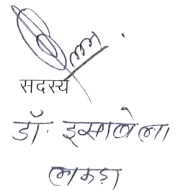 सदस्य
डॉ. इसाबेला
लकड़ा